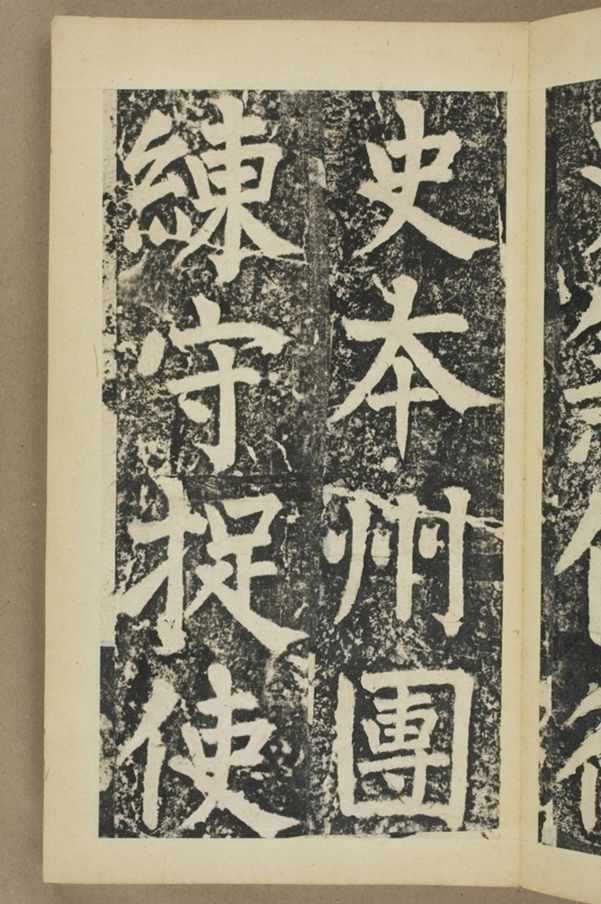 史本州團
練守捉使